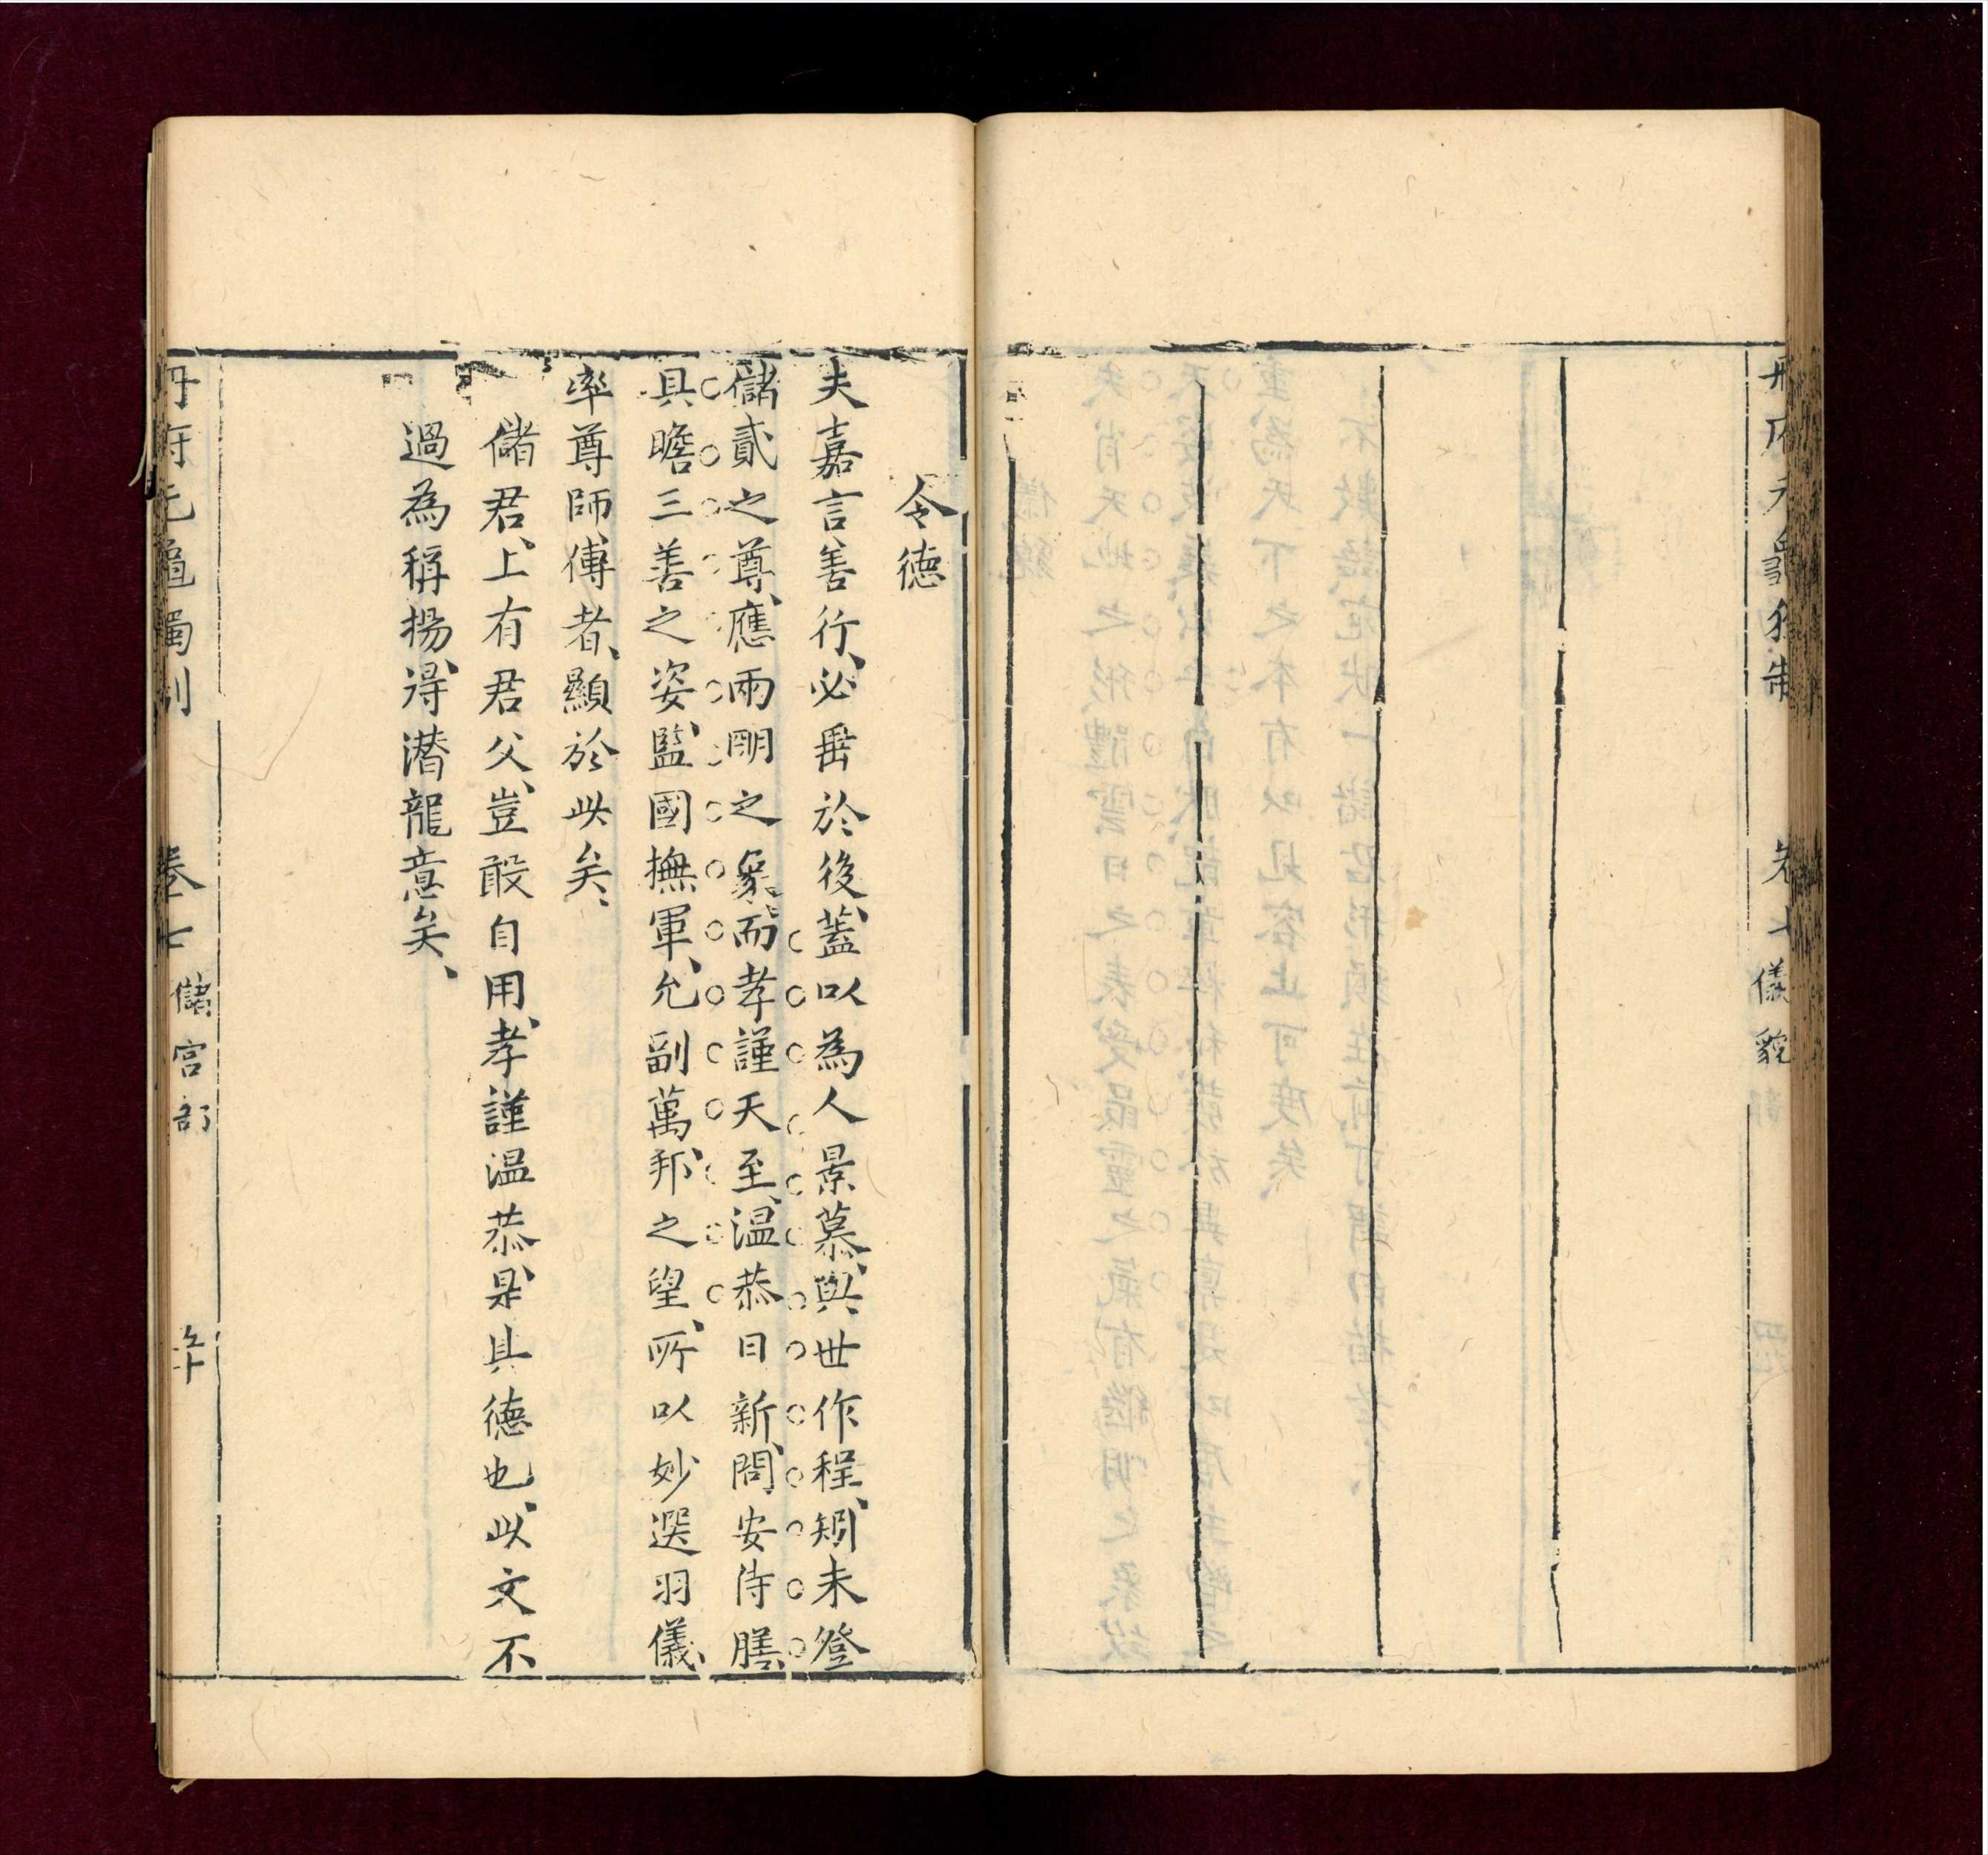 冊府元龜獨制 卷七 儀貌
令德
夫嘉言善行、必垂於後、蓋以為人景慕、與世作程、矧未登
儲貳之尊、應兩明之象、而孝謹天至、温恭日新、問安侍膳、
具瞻三善之姿、監國撫軍、允副萬邦、之望、所以妙選羽儀、
率尊師傅者、顯於此矣、
儲君、上有君父、豈敢自用、孝謹温恭、是具德也、此文不
過為稱揚、得潛龍意矣、
冊府元龜獨制 卷七 儲宮部 五十